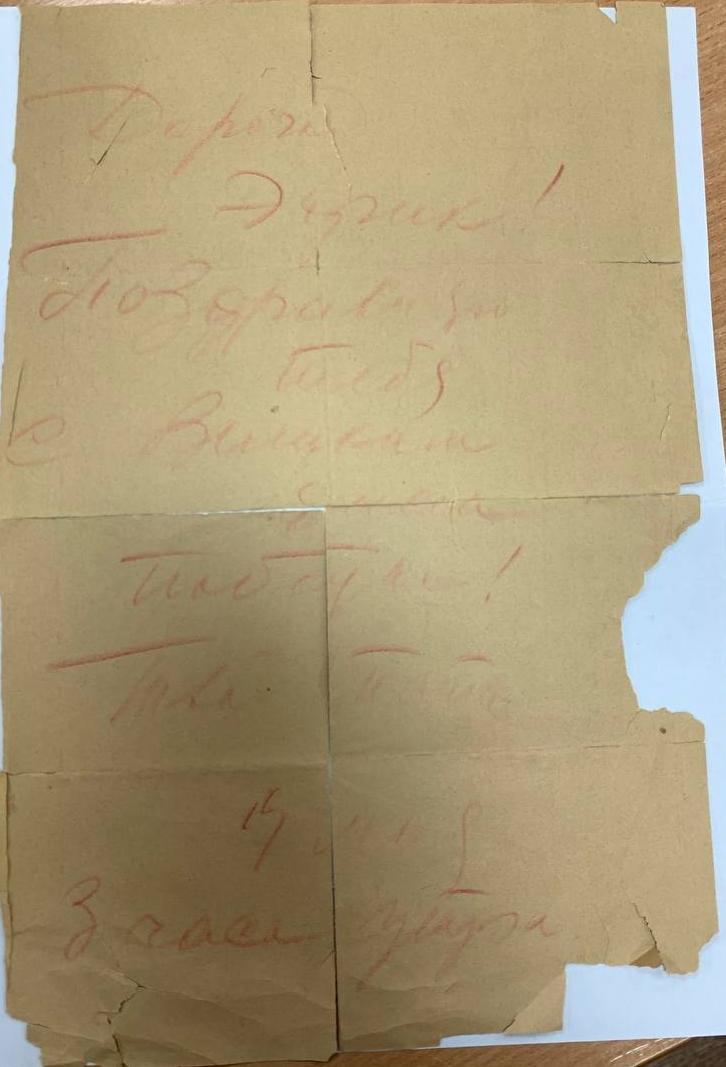 Дорогой
Эдрик!
Поздравляю
тебя
с Великим
днем
Победы!
Твой папа
9 мая
3 часа утра